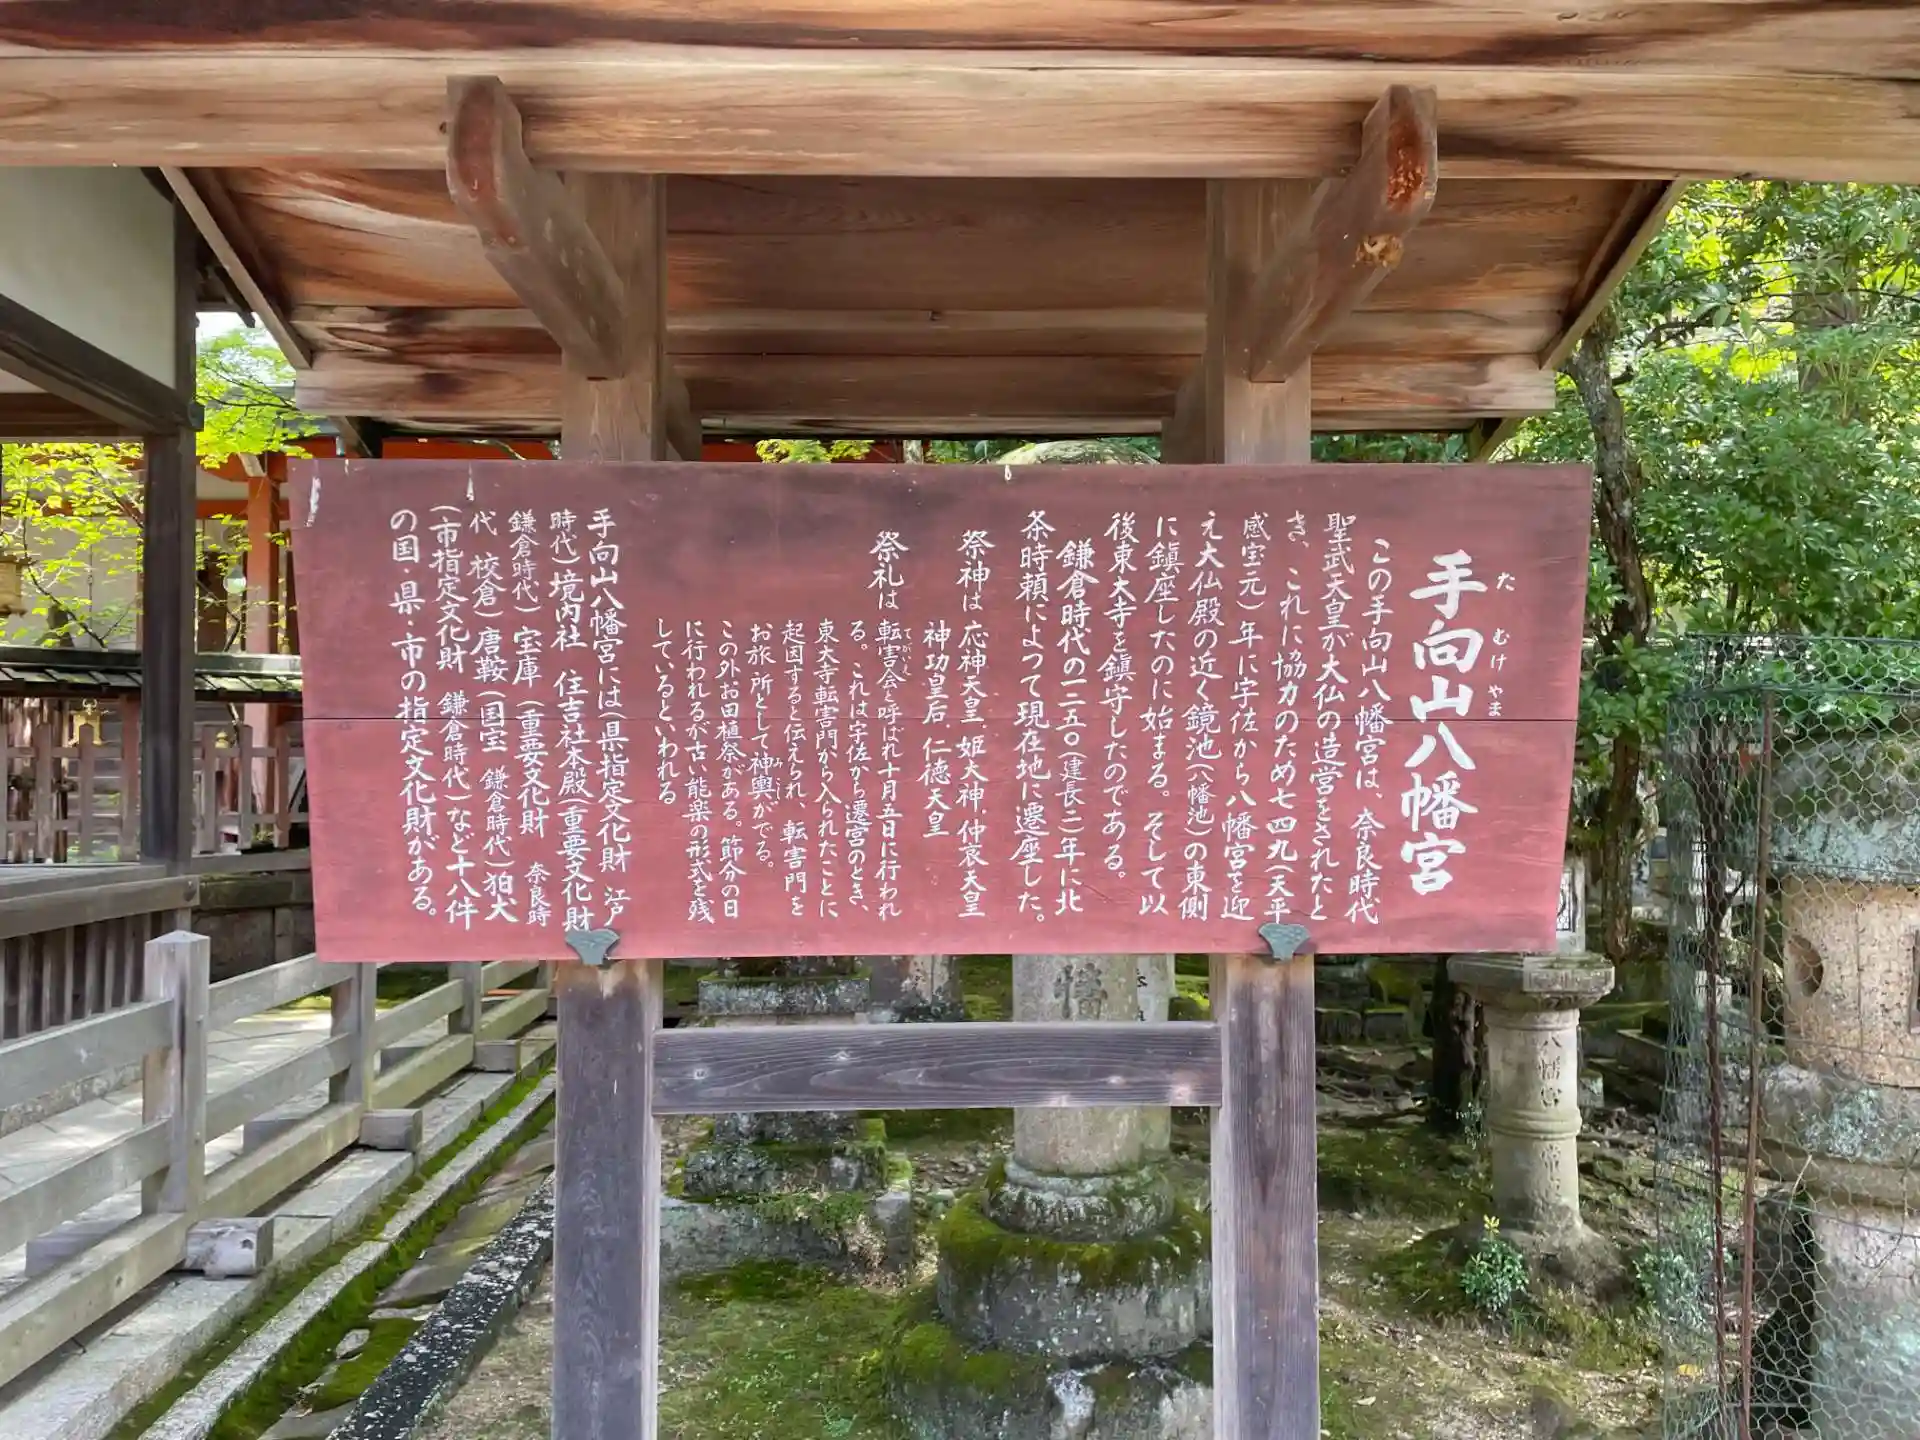 手向山八幡宮
た むけ やま
この手向山八幡宮は、奈良時代
聖武天皇が大仏の造営をされたと
き、これに協力のため七四九(天平
感宝元)年に宇佐から八幡宮を迎
え大仏殿の近く鏡池(八幡池)の東側
に鎮座したのに始まる。そして以
後東大寺を鎮守したのである。
鎌倉時代の一二五〇(建長二)年に北
条時頼によって現在地に遷座した。
祭神は 応神天皇、姫大神、仲哀天皇
神功皇后、仁徳天皇
祭礼は 転害会と呼ばれ十月五日に行われ
てがいえ
る。これは宇佐から遷宮のとき、
東大寺転害門から入られたことに
起因すると伝えられ、転害門を
お旅所として神輿がでる。
みこし
この外お田植祭がある。節分の日
に行われるが古い能楽の形式を残
しているといわれる
手向山八幡宮には(県指定文化財 江戸
時代)境内社 住吉社本殿(重要文化財
鎌倉時代)宝庫(重要文化財 奈良時
代 校倉)唐鞍(国宝 鎌倉時代)狛犬
(市指定文化財 鎌倉時代)など十八件
の国・県・市の指定文化財がある。
幡
八幡宮